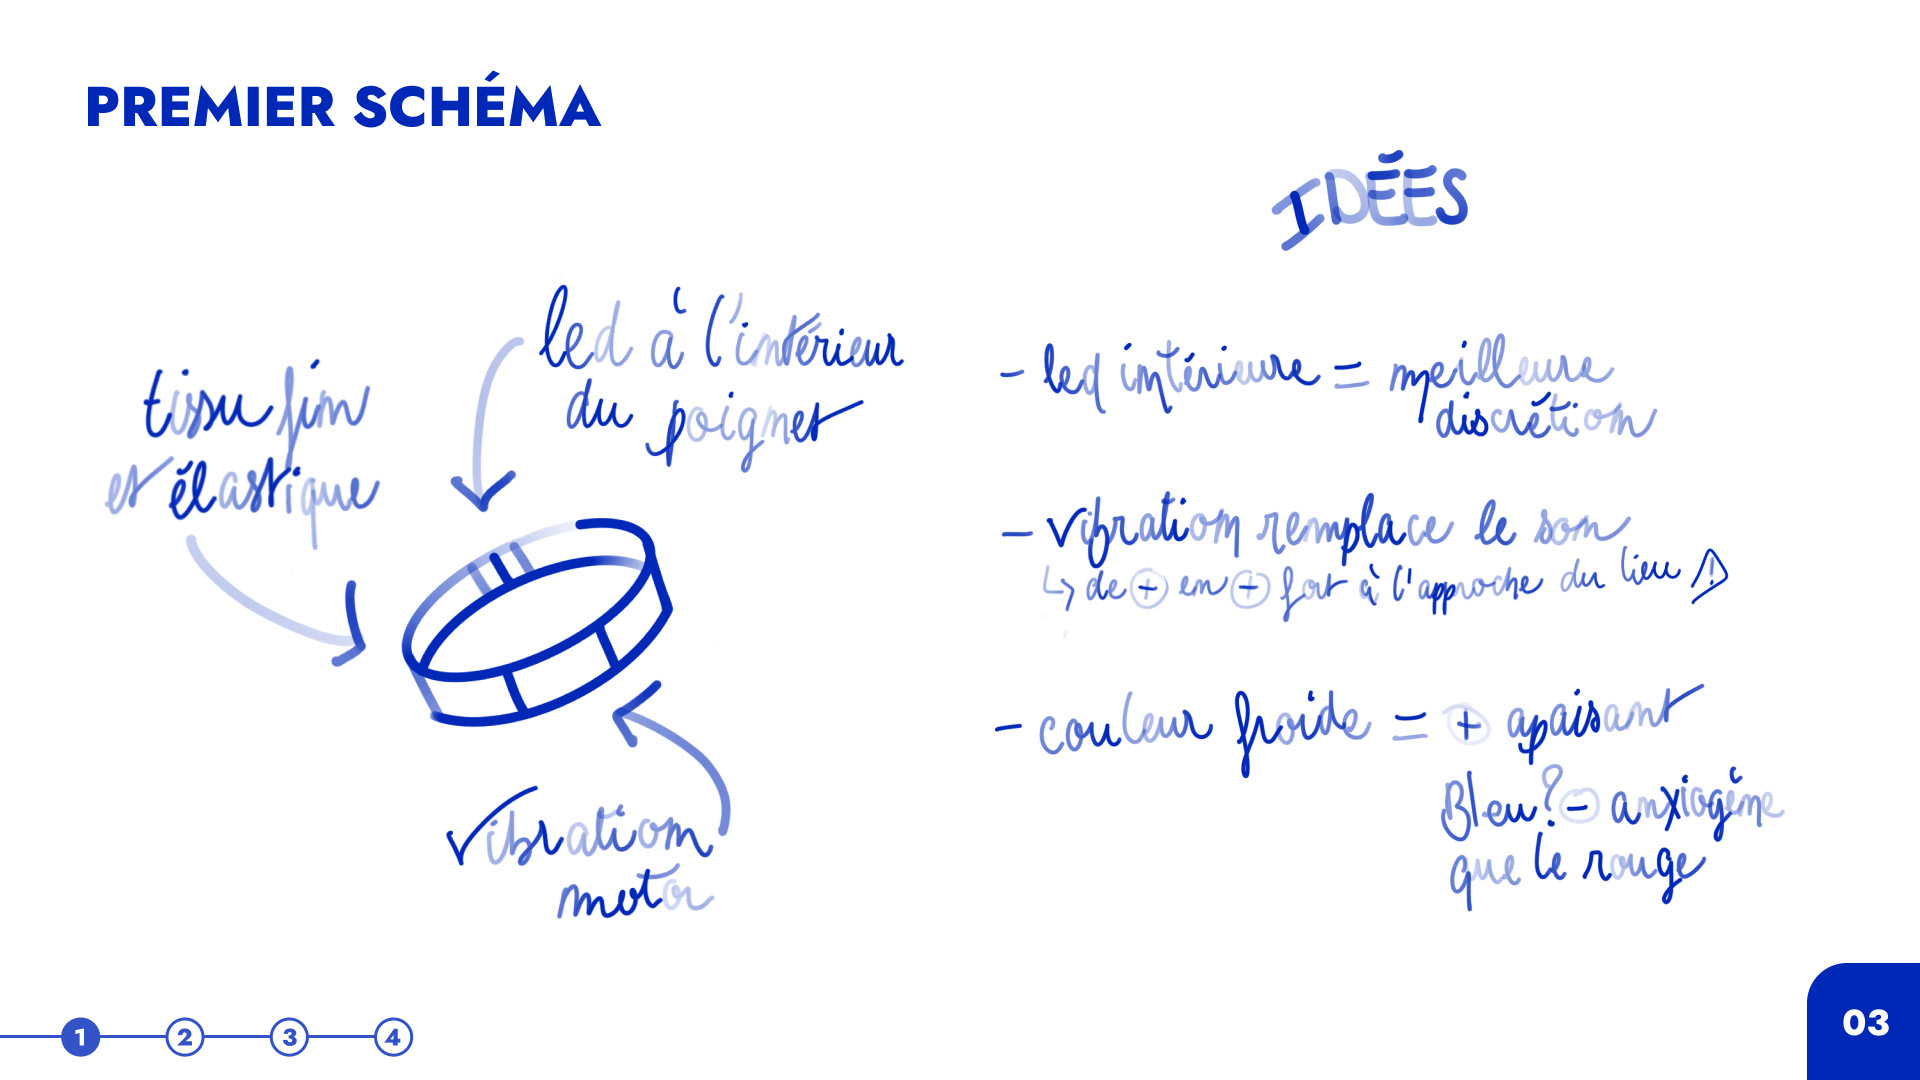 PREMIER SCHÉMA
tissu fin
et élastique
led à l'intérieur
du poignet
vibration
motor
IDÉES
- led intérieure = meilleure
discrétion
- vibration remplace le son
↳ de ⊕ en ⊕ fort à l'approche du lieu ⚠
- couleur froide = ⊕ apaisant
Bleu? ⊖ anxiogène
que le rouge
1 2 3 4
03